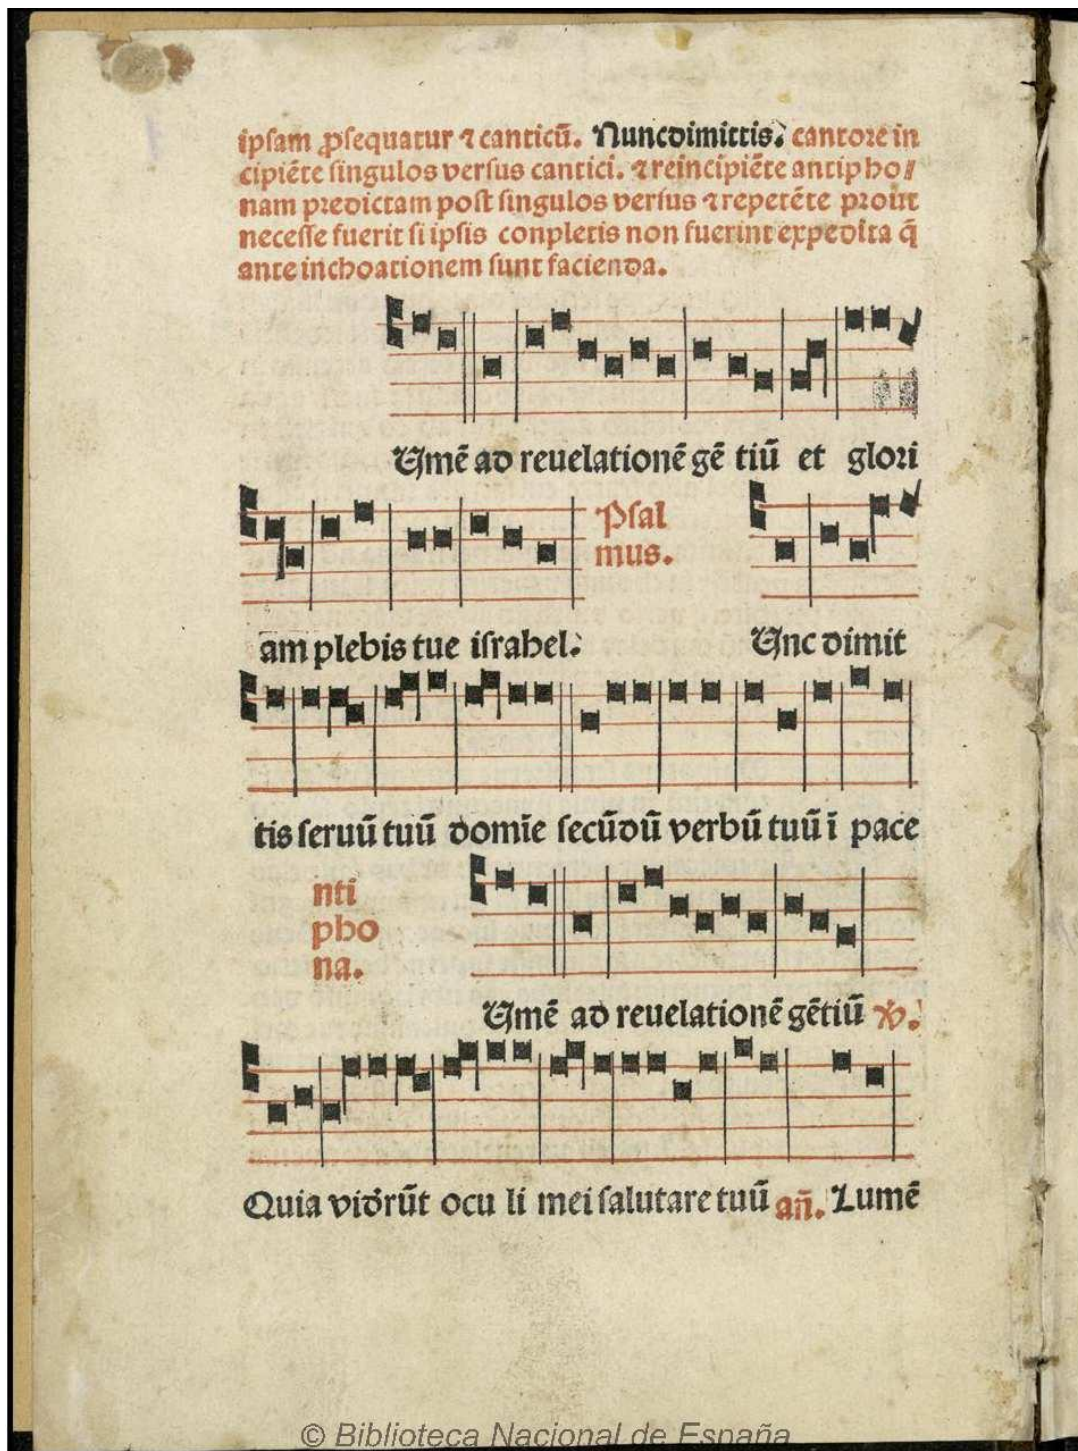 ipsam ꝓsequatur ⁊ canticū. Nuncdimittis. cantore in
cipiēte singulos versus cantici. ⁊ reincipiēte antipho/
nam predictam post singulos versus ⁊ repetēte prout
necesse fuerit si ipsis conpletis non fuerint expedita q̄
ante inchoationem sunt facienda.
Umē ad reuelationē gē tiū et glori
Psal
mus.
am plebis tue israhel.
Unc dimit
tis seruū tuū domīe secūdū verbū tuū ī pace
nti
pho
na.
Umē ad reuelationē gētiū ℣.
Quia vidrūt ocu li mei salutare tuū añ. Lumē
© Biblioteca Nacional de España